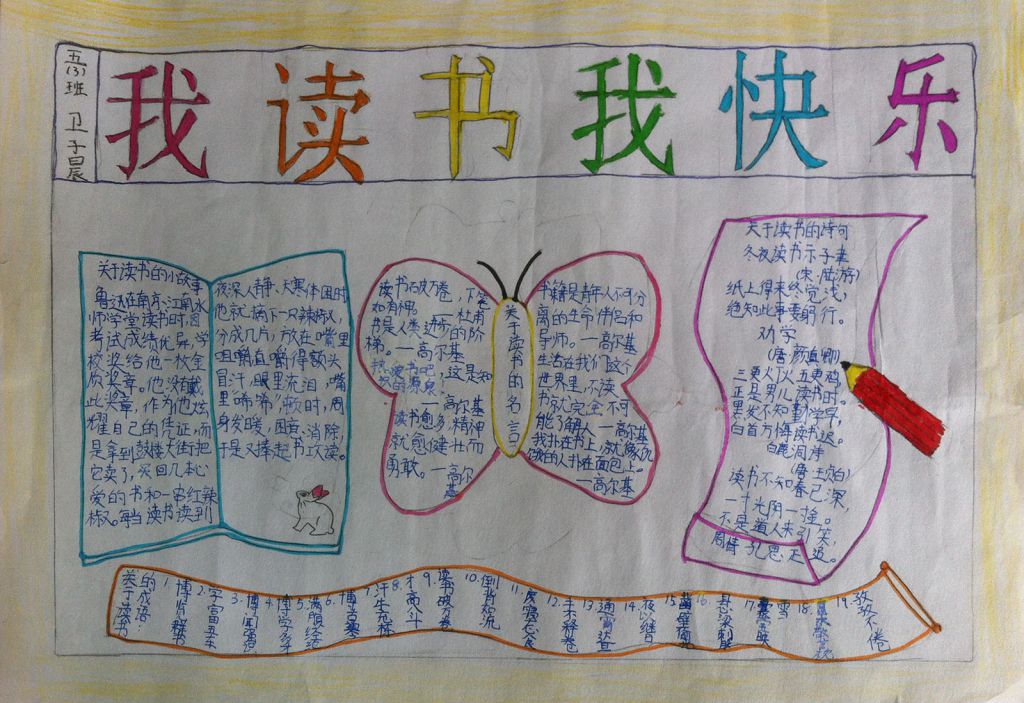 五(3)班 卫子晨
我读书我快乐
关于读书的小故事
鲁迅在南京江南水
师学堂读书时,因
考试成绩优异,学
校奖给他一枚金
质奖章。他没有戴
此奖章,作为他炫
耀自己的凭证,而
是拿到鼓楼大街把
它卖了,买回几本心
爱的书和一串红辣
椒。每当读书读到
夜深人静、天寒体困时
他就摘下一只辣椒,
分成几片,放在嘴里
咀嚼,直嚼得额头
冒汗,眼里流泪,嘴
里唏唏,顿时,周
身发暖,困意消除,
于是又捧起书攻读。
读书破万卷,下笔
如有神。 杜甫
书是人类进步的阶
梯。—高尔基
热爱书吧,这是知
识的源泉!
—高尔基
读书愈多,精神
就愈健壮而
勇敢。—高尔
基
关于读书的名言
书籍是青年人不可分
离的生命伴侣和
导师。—高尔基
生活在我们这个
世界里,不读
书就完全不可
能了解人。—高尔基
我扑在书上,就像饥
饿的人扑在面包上。
—高尔基
关于读书的诗句
冬夜读书示子聿
(宋·陆游)
纸上得来终觉浅,
绝知此事要躬行。
劝学
(唐·颜真卿)
三更灯火五更鸡,
正是男儿读书时。
黑发不知勤学早,
白首方悔读书迟。
白鹿洞
(唐·王贞白)
读书不知春已深,
一寸光阴一寸金。
不是道人来引笑,
周情孔思正追。
关于读书
的成语:
1.博览群书
2.学富五车
3.博闻强识
4.博学多才
5.满腹经纶
6.博古
7.汗牛充栋
8.才高八斗
9.读书破万卷
10.倒背如流
11.废寝忘食
12.手不释卷
13.通宵达旦
14.夜以继日
15.凿壁偷光
16.悬梁刺股
17.
18.
19.孜孜不倦